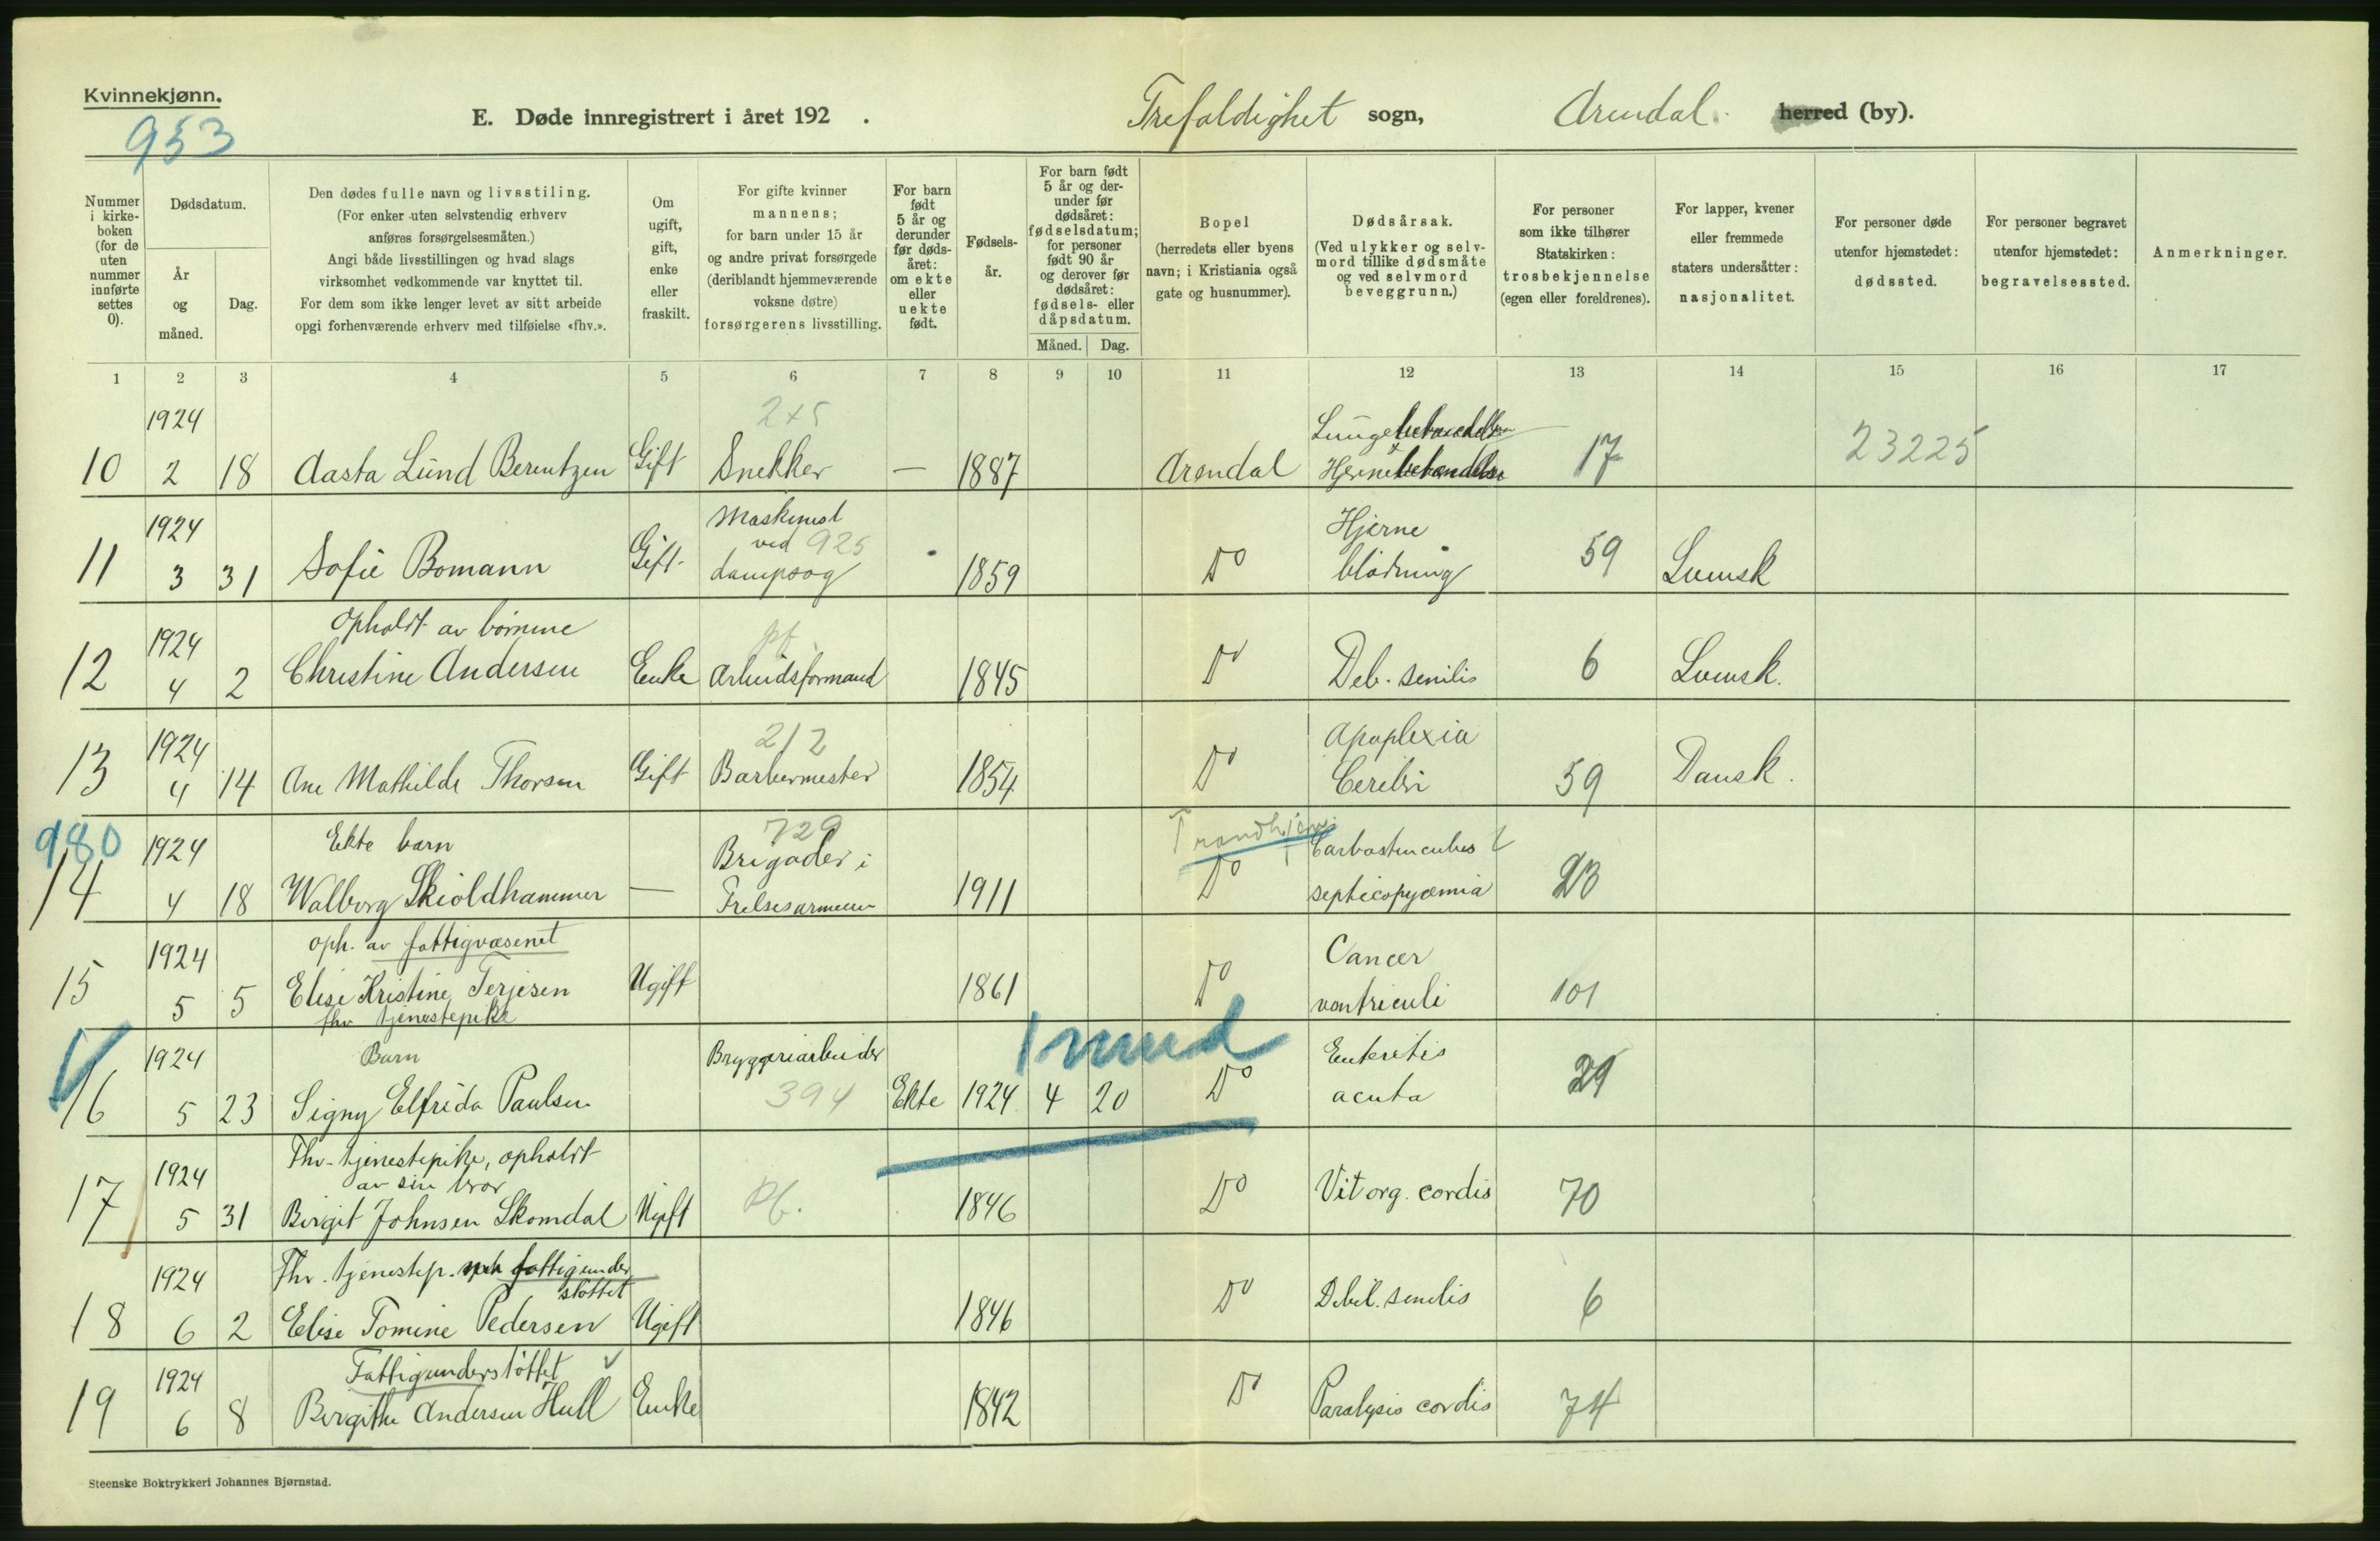 Kvinnekjønn.
953
E. Døde innregistrert i året 192 .
Trefoldighet sogn, Arendal. herred (by).
Nummer i kirkeboken (for de uten nummer innførte settes 0).
Dødsdatum.
År og måned.
Dag.
Den dødes fulle navn og livsstiling.
(For enker uten selvstendig erhverv
anføres forsørgelsesmåten.)
Angi både livsstillingen og hvad slags
virksomhet vedkommende var knyttet til.
For dem som ikke lenger levet av sitt arbeide
opgi forhenværende erhverv med tilføielse «fhv.».
Om ugift, gift, enke eller fraskilt.
For gifte kvinner
mannens;
for barn under 15 år
og andre privat forsørgede
(deriblandt hjemmeværende
voksne døtre)
forsørgerens livsstilling.
For barn født 5 år og derunder før dødsåret: om ekte eller uekte født.
Fødselsår.
For barn født 5 år og derunder før dødsåret: fødselsdatum; for personer født 90 år og derover før dødsåret: fødsels- eller dåpsdatum.
Måned. Dag.
Bopel
(herredets eller byens
navn; i Kristiania også
gate og husnummer).
Dødsårsak.
(Ved ulykker og selvmord tillike dødsmåte
og ved selvmord
beveggrunn.)
For personer
som ikke tilhører
Statskirken:
trosbekjennelse
(egen eller foreldrenes).
For lapper, kvener
eller fremmede
staters undersåtter:
nasjonalitet.
For personer døde
utenfor hjemstedet:
dødssted.
For personer begravet
utenfor hjemstedet:
begravelsessted.
Anmerkninger.
1 2 3 4 5 6 7 8 9 10 11 12 13 14 15 16 17
1924 2+5
10 2 18 Aasta Lund Berentzen Gift Snekker — 1887 Arendal 17 23225
1924 Maskinist Hjerne
ved 925
11 3 31 Sofie Bomann Gift dampsag 1859 Do blødning 59 Svensk
1924 Opholdt av børnene pf.
12 4 2 Christine Andersen Enke Arbeidsformand 1845 Do Deb. senilis 6 Svensk.
1924 212 Apoplexia
13 4 14 Ane Mathilde Thorsen Gift Barbermester 1854 Do Cerebri 59 Dansk.
980 1924 Ekte barn 729 Trondhjem
Brigader i
14 4 18 Walborg Skioldhammer — Frelsesarmeen 1911 Do septicopyæmia 23
1924 oph. av fattigvæsenet Cancer
15 5 5 Elise Kristine Terjesen Ugift 1861 Do ventriculi 101
fhv tjenestepike
1924 Barn Bryggeriarbeider 1 mnd Enteritis
16 5 23 Signy Elfrida Paulsen 394 Ekte 1924 4 20 Do acuta 29
1924 Fhv. tjenestepike, opholdt
av sin bror
17 5 31 Birgit Johnsen Skomdal Ugift Pf. 1846 Do Vit org. cordis 70
1924 Fhv. tjenestep. fattigunder
støttet
18 6 2 Elise Tomine Pedersen Ugift 1846 Do Debil. senilis 6
1924 Fattigunderstøttet
19 6 8 Birgithe Andersen Hull Enke 1842 Do Paralysis cordis 74
Steenske Boktrykkeri Johannes Bjørnstad.